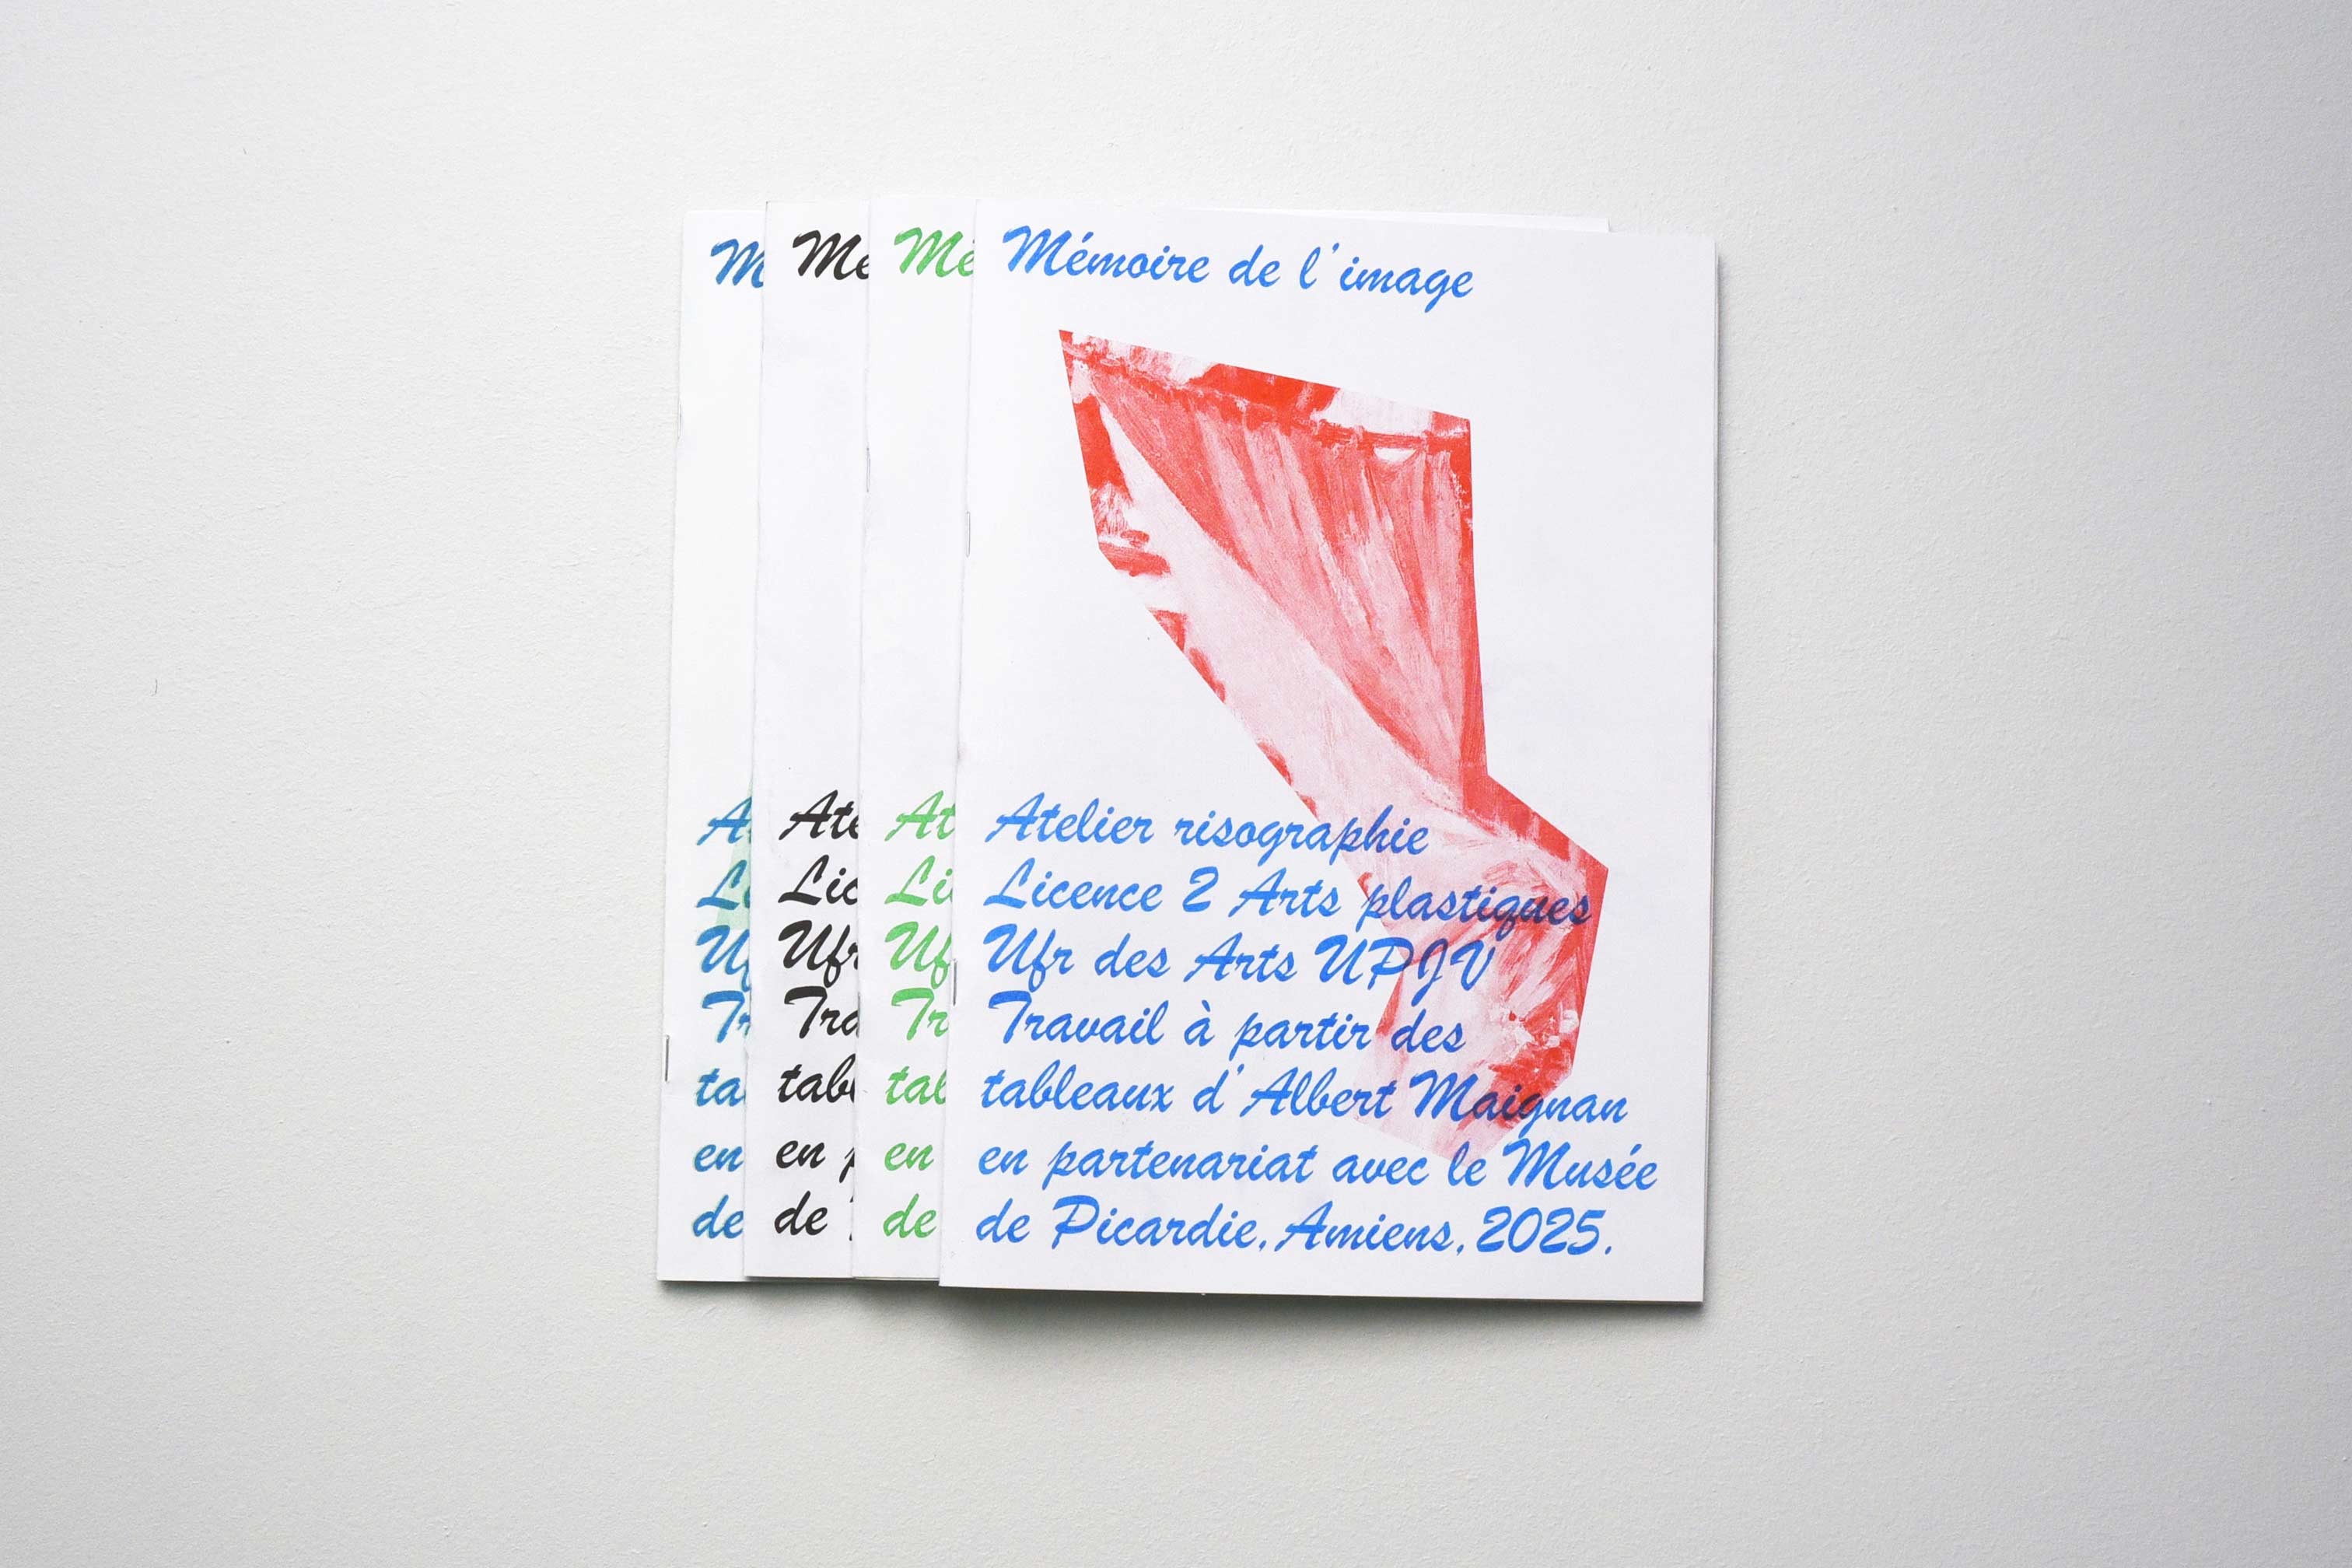 M
Mé
Mé
Mémoire de l'image
A
Ate
At
Atelier risographie
Li
Lic
Li
Licence 2 Arts plastiques
Uf
Ufr
Uf
Ufr des Arts UPJV
Tr
Tra
Tr
Travail à partir des
ta
tab
tab
tableaux d'Albert Maignan
en
en p
en
en partenariat avec le Musée
de
de
de
de Picardie, Amiens, 2025.